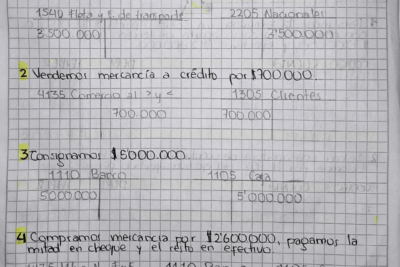 1540 Flota y E. de transporte 2205 Nacionales
3'500 000 3'500.000
2 Vendemos mercancía a crédito por $700.000.
4135 Comercio al > y < 1305 Clientes
700.000 700.000
3 Consignamos $5'000.000.
1110 Banco 1105 Caja
5'000000 5'000.000
4 Compramos mercancía por $2'600.000, pagamos la
mitad en cheque y el resto en efectivo.